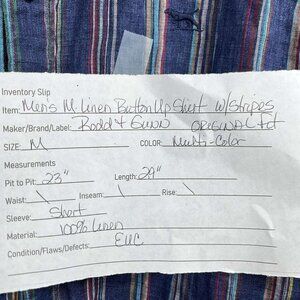 Inventory Slip
Item: Mens M Linen Button Up Shirt w/Stripes
Maker/Brand/Label: Rodd & Gunn ORIGINAL Fit
SIZE: M COLOR: Multi-Color
Measurements
Pit to Pit: 23" Length: 29"
Waist: \ Inseam: \ Rise: \
Sleeve: Short
Material: 100% Linen
Condition/Flaws/Defects: EUC